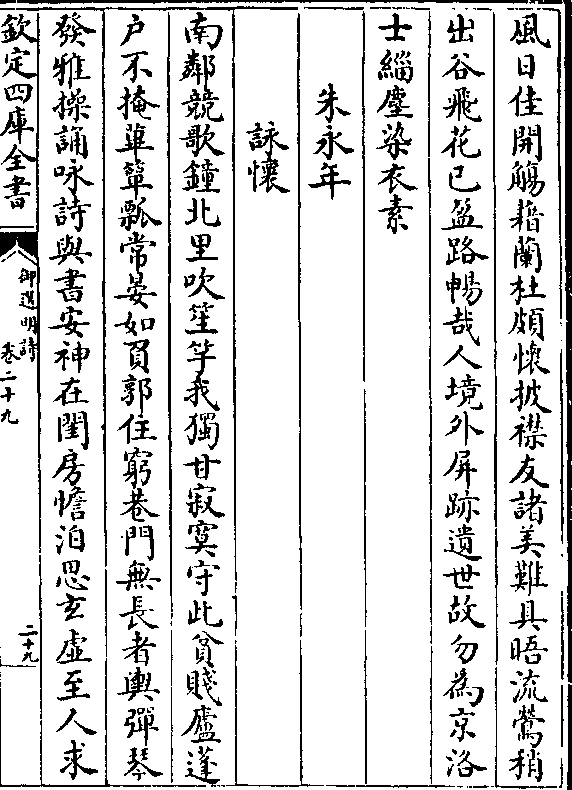 風日佳開觴藉蘭杜頗懷披襟友諸美難具晤流鶯稍
出谷飛花已盈路暢哉人境外屏跡遺世故勿為京洛
士緇塵染衣素
朱永年
詠懷
南鄰競歌鐘北里吹笙竽我獨甘寂寞守此貧賤廬蓬
户不掩蓽簞瓢常晏如負郭住窮巷門無長者輿彈琴
發雅操誦咏詩與書安神在閨房憺泊思玄虛至人求
欽定四庫全書
御選明詩
卷二十九
二十九